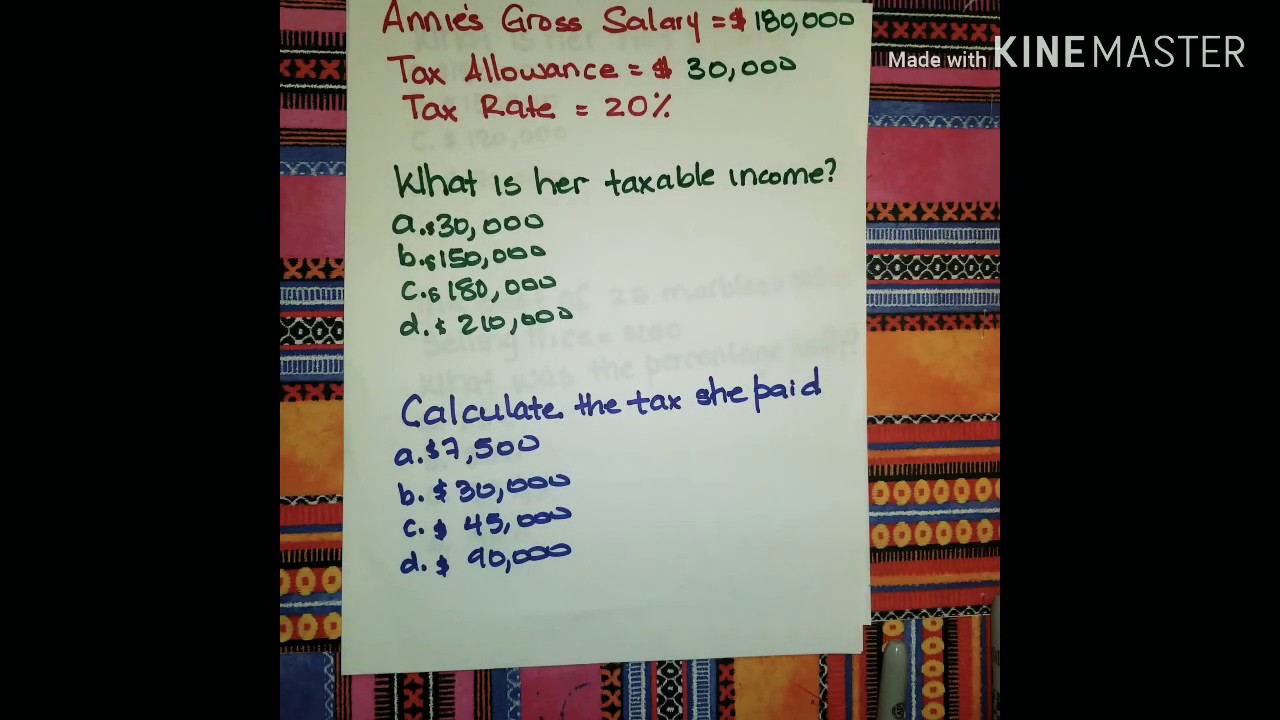 Annie's Gross Salary = $ 180,000
Made with KINEMASTER
Tax Allowance = $ 30,000
Tax Rate = 20%
What is her taxable income?
a. $30,000
b. $150,000
c. $ 180,000
d. $ 210,000
Calculate the tax she paid
a. $7,500
b. $ 30,000
c. $ 45,000
d. $ 90,000